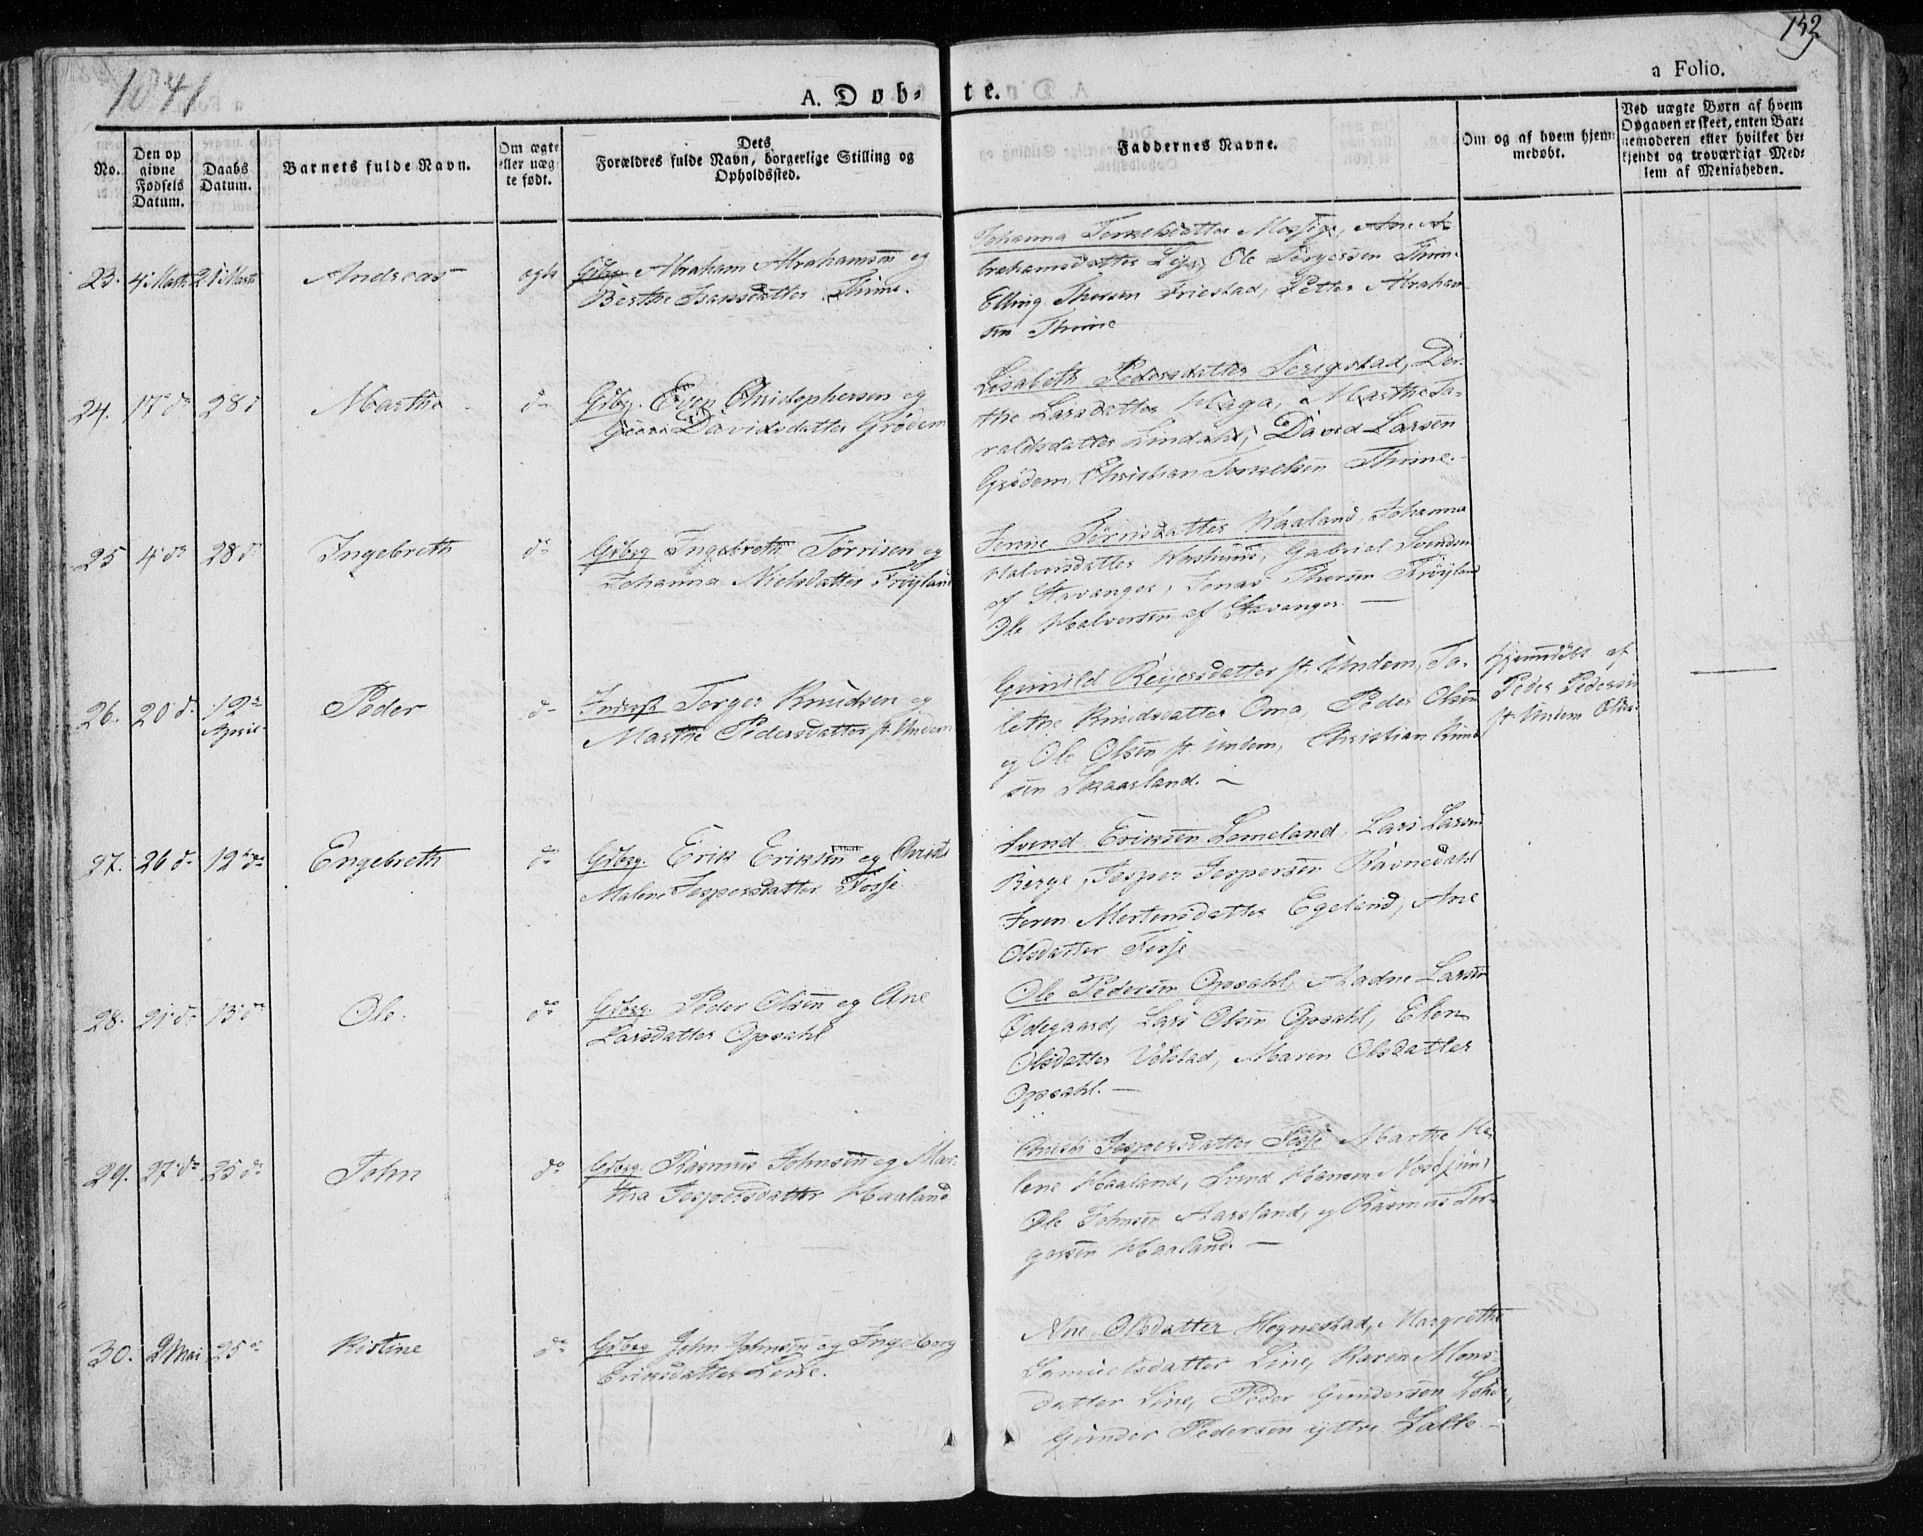 1841
152
A. Døb-
te.
a Folio.
No.
Den op
givne
Fødsels
Datum.
Daabs
Datum.
Barnets fulde Navn.
Om ægte
eller uæg-
te født.
Dets
Forældres fulde Navn, borgerlige Stilling og
Opholdssted.
Faddernes Navne.
Om og af hvem hjem-
medøbt.
Ved uægte Børn af hvem
Opgaven er skeet, enten Bar-
nemoderen eller hvilket be-
kjendt og troværdigt Med-
lem af Menigheden.
23. 4 Marts 21 Marts Andreas ægte
Gdbrg. Abraham Abrahamsen og
Berthe Isaksdatter Thime.
Johanna Torkelsdatter Mossige, Ane A-
brahamsdatter Lye, Ole Tørgersen Thime
Elling Thorsen Friestad, Petter Abraham-
sen Thime
24. 17 d° 28 d Martha d°
Gdbrg. Even Christophersen og
Davidsdatter Grødem
Lisabeth Pedersdatter Serigstad, Dor-
the Larsdatter Haga, Marthe Ta-
raldsdatter Lindahl, David Larsen
Grødem, Christian Torkelsen Thime.
25 4 d° 28 d° Ingebreth d°
Gdbrg Ingebreth Tørrisen og
Johanna Nielsdatter Frøyland
Serene Tørrisdatter Haaland, Johanna
Halvorsdatter Gabriel Svendsen
af Stavanger, Jonas Thorsen Frøyland
Ole Halvorsen af Stavanger. —
26. 20 d. 12te April. Peder d°
Inderst Torger Knudsen og
Marthe Pedersdatter st. Undem
Gunild Reiersdatter st. Undem, Ta-
lethe Knudsdatter Oma, Peder Olsen
og Ole Olsen st Undem, Christian Knud-
sen Skaarland. —
hjemmedøbt af
Peder Pedersen
st. Undem
27. 26 d° 12te d° Engebreth d°
Gdbrg. Erik Eriksen og
Malene Jespersdatter Fosse
Svend Eriksen Lomeland, Lars Larsen
Berge, Jesper Jespersen Ravnedahl
Seren Mortensdatter Egeland, Ane
Olsdatter Fosse
28. 21 d° 13 d° Ole. d°
Gdbrg. Peder Olsen og Ane
Larsdatter Opsahl
Ole Pedersen Opsahl, Aadne Larsen
Ødegaard, Lars Olsen Opsahl, Elen
Olsdatter Velstad, Maren Olsdatter
Opsahl. —
29. 27 d° 25 d° John d°
Gdbrg. Rasmus Johnsen og Mar-
tha Jespersdatter Haaland
Jespersdatter Fosse, Marthe He-
lene Haaland, Svend Hansen
Ole Johnsen Aarsland, og Rasmus Tor-
gersen Haaland. —
30. 2 Mai 25 d° Kistine d°
Gdbrg John Johnsen og Ingeborg
Eriksdatter Line.
Ane Olsdatter Hognestad, Margrethe
Samuelsdatter Line, Karen Mons-
datter Line, Peder Gundersen
Gunder Pedersen yttre Salte. —